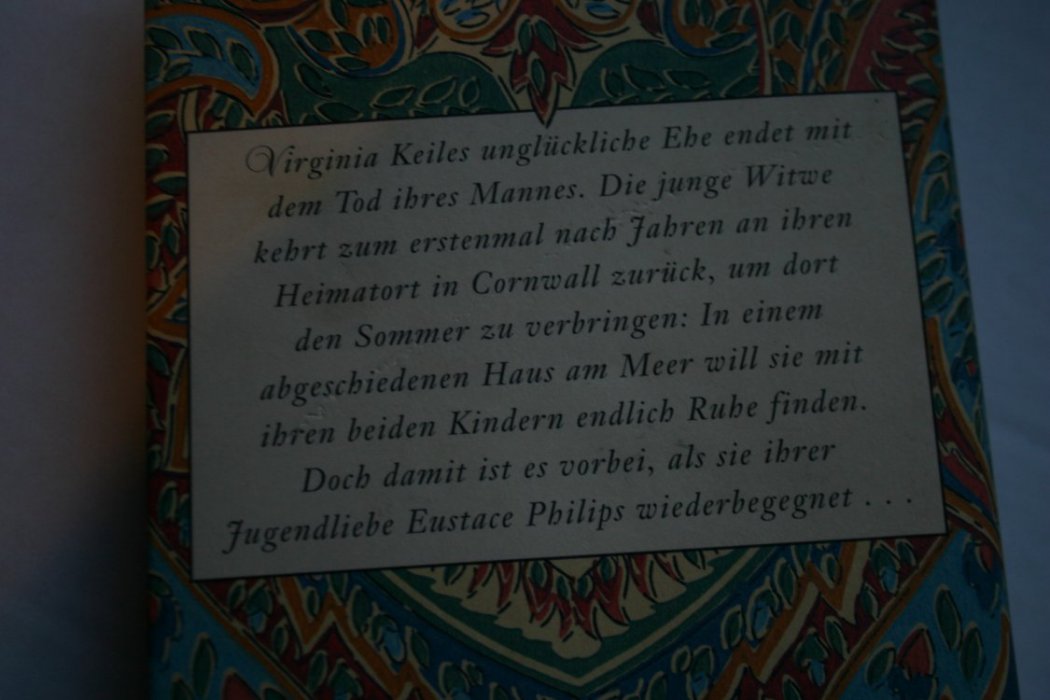 Virginia Keiles unglückliche Ehe endet mit
dem Tod ihres Mannes. Die junge Witwe
kehrt zum erstenmal nach Jahren an ihren
Heimatort in Cornwall zurück, um dort
den Sommer zu verbringen: In einem
abgeschiedenen Haus am Meer will sie mit
ihren beiden Kindern endlich Ruhe finden.
Doch damit ist es vorbei, als sie ihrer
Jugendliebe Eustace Philips wiederbegegnet . . .